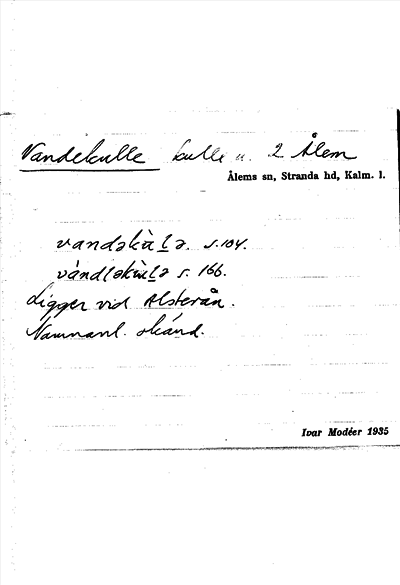 Vandekulle kulle u. 2 Ålem
Ålems sn, Stranda hd, Kalm. l.
vandəkùlə. s. 104.
vàndləkùlə s. 166.
Ligger vid Alsterån.
Namnanl. okänd.
Ivar Modéer 1935